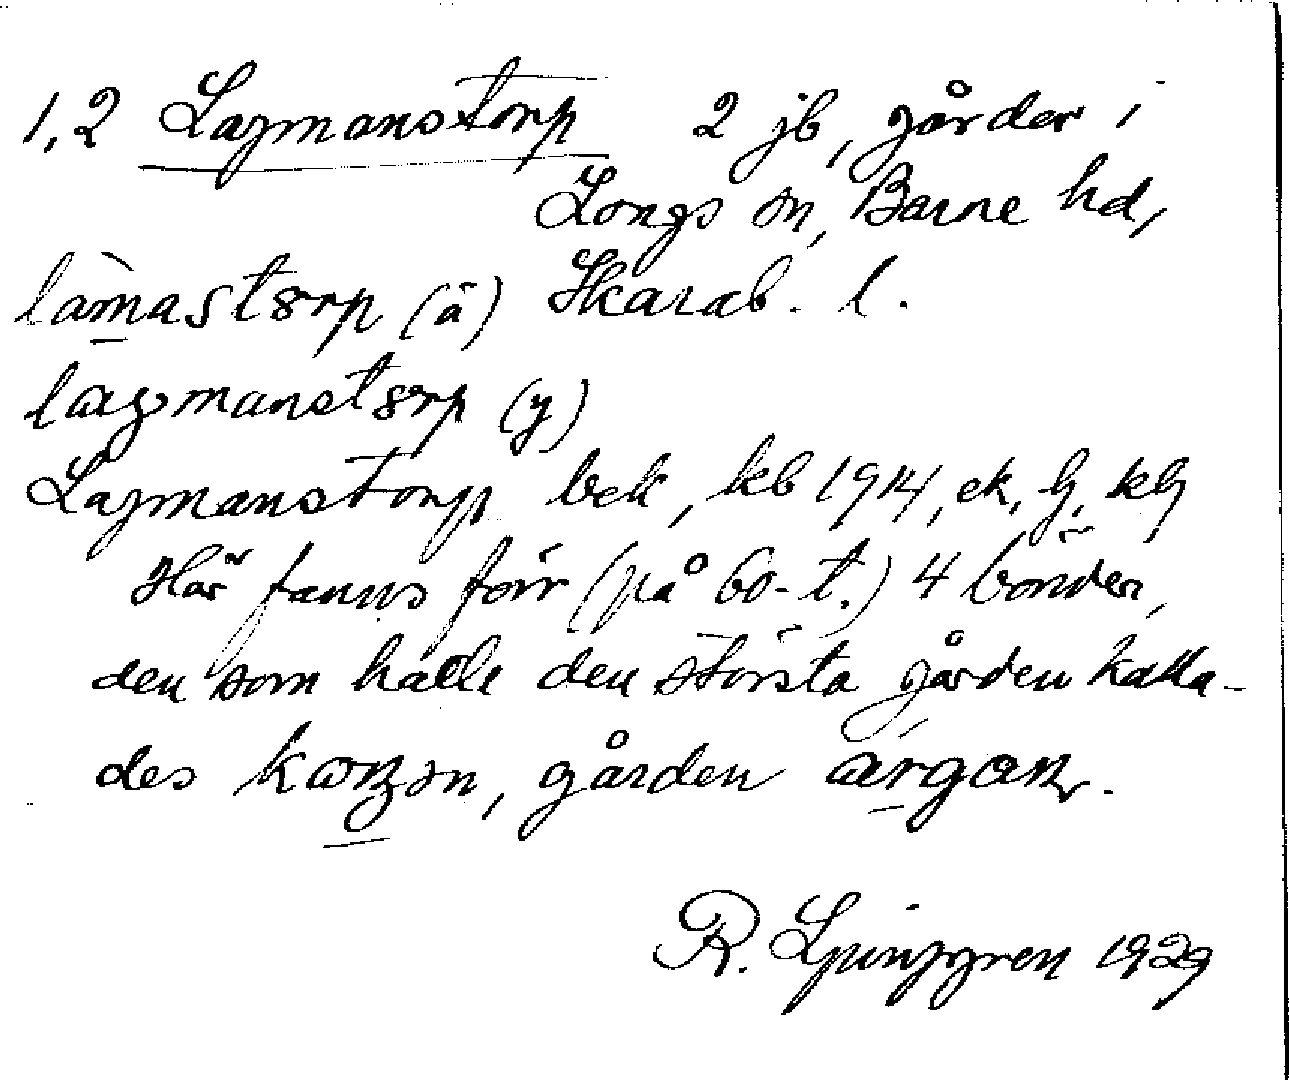 1,2 Lagmanstorp 2 jb, gårder i
Longs sn, Barne hd,
làmastorp (ä) Skarab. l.
lagmanstorp (y)
Lagmanstorp bek, kb 1914, ek, G, kG
Här fanns förr (på 60-t.) 4 bönder,
den som hade den största gården kalla-
des gården
R. Ljunggren 1929